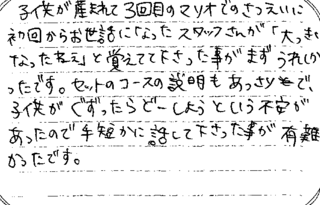 子供が産まれて3回目のマリオでのさつえいに
初回からお世話になったスタッフさんが「大っきく
なったねぇ」と覚えてて下さった事がまずうれしか
ったです。セットのコースの説明もあっさりで、
子供がぐずったらどーしようという不安が
あったので手短かに話して下さった事が有難
かったです。